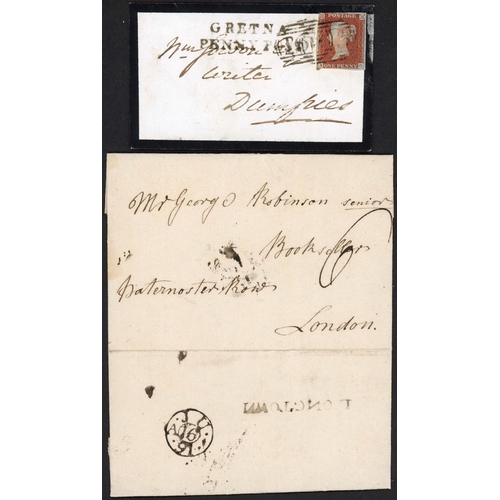 GRETNA
PENNY POST
POSTAGE
ONE PENNY
Writer
Dumfries
Mr George Robinson senior
Bookseller
6
Paternoster Row
London.
LONGTOWN
JU
A 16
91